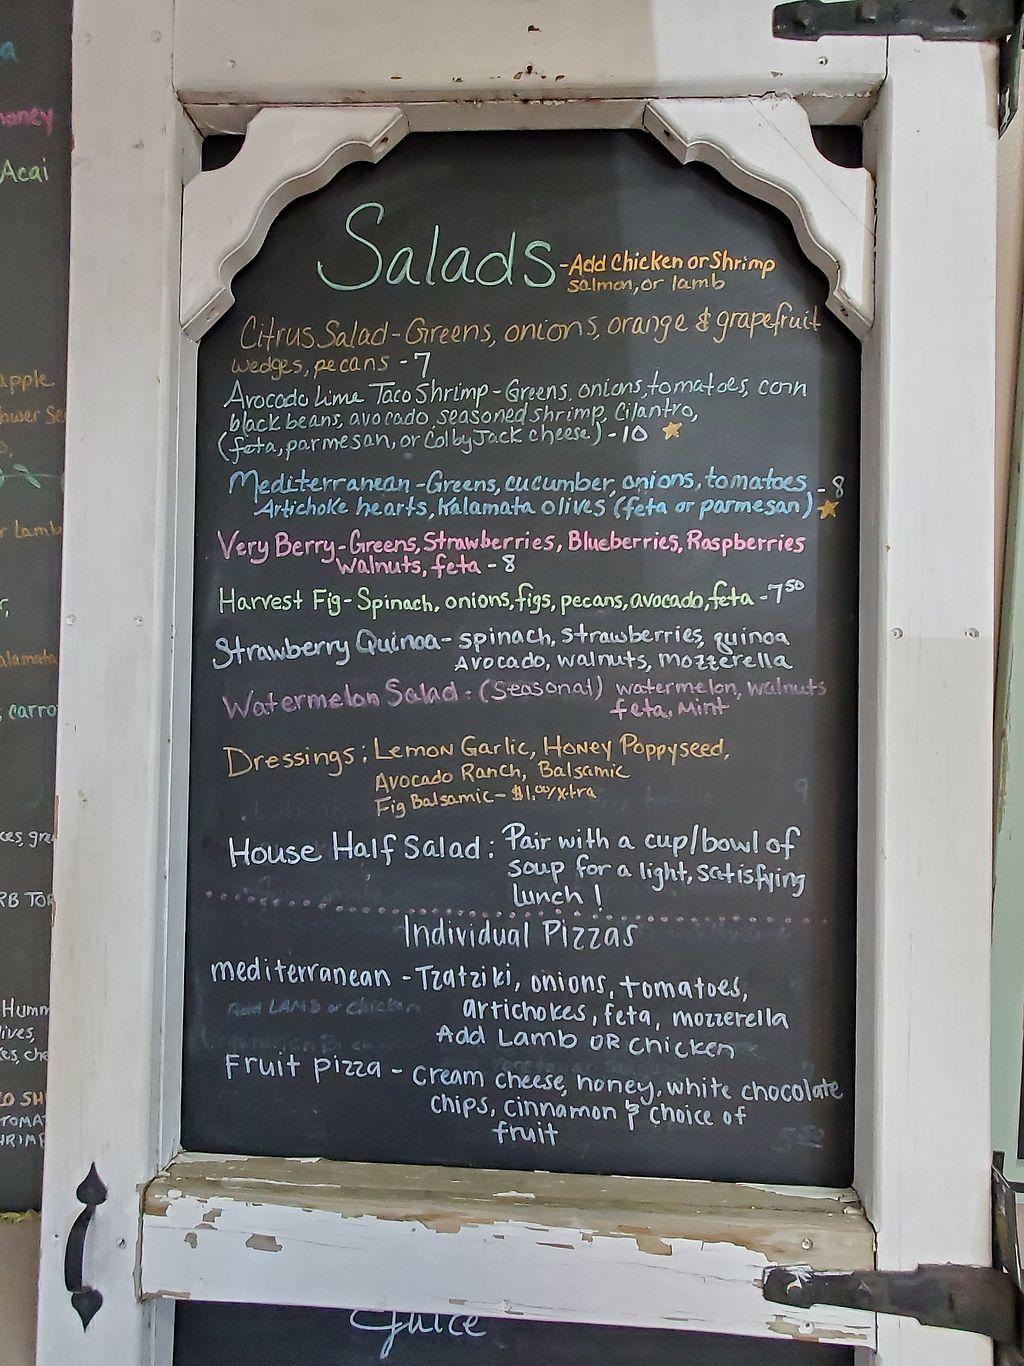 Salads - Add Chicken or Shrimp
salmon, or lamb
Citrus Salad - Greens, onions, orange & grapefruit
wedges, pecans - 7
Avocado Lime Taco Shrimp - Greens, onions, tomatoes, corn
black beans, avocado, seasoned shrimp, Cilantro,
(feta, parmesan, or Colby Jack cheese) - 10
Mediterranean - Greens, cucumber, onions, tomatoes - 8
Artichoke hearts, Kalamata olives (feta or parmesan)
Very Berry - Greens, Strawberries, Blueberries, Raspberries
Walnuts, feta - 8
Harvest Fig - Spinach, onions, figs, pecans, avocado, feta - 7 50
Strawberry Quinoa - spinach, strawberries, quinoa
Avocado, walnuts, mozzerella
Watermelon Salad: (Seasonal) watermelon, walnuts
feta, mint
Dressings: Lemon Garlic, Honey Poppyseed,
Avocado Ranch, Balsamic
Fig Balsamic - $1.00/xtra
House Half Salad: Pair with a cup/bowl of
soup for a light, satisfying
lunch!
Individual Pizzas
mediterranean - Tzatziki, onions, tomatoes,
artichokes, feta, mozzerella
Add LAMB or chicken
Add Lamb OR chicken
Fruit pizza - cream cheese, honey, white chocolate
chips, cinnamon & choice of
fruit
Juice
honey
Acai
apple
Lamb
kalamata
carro